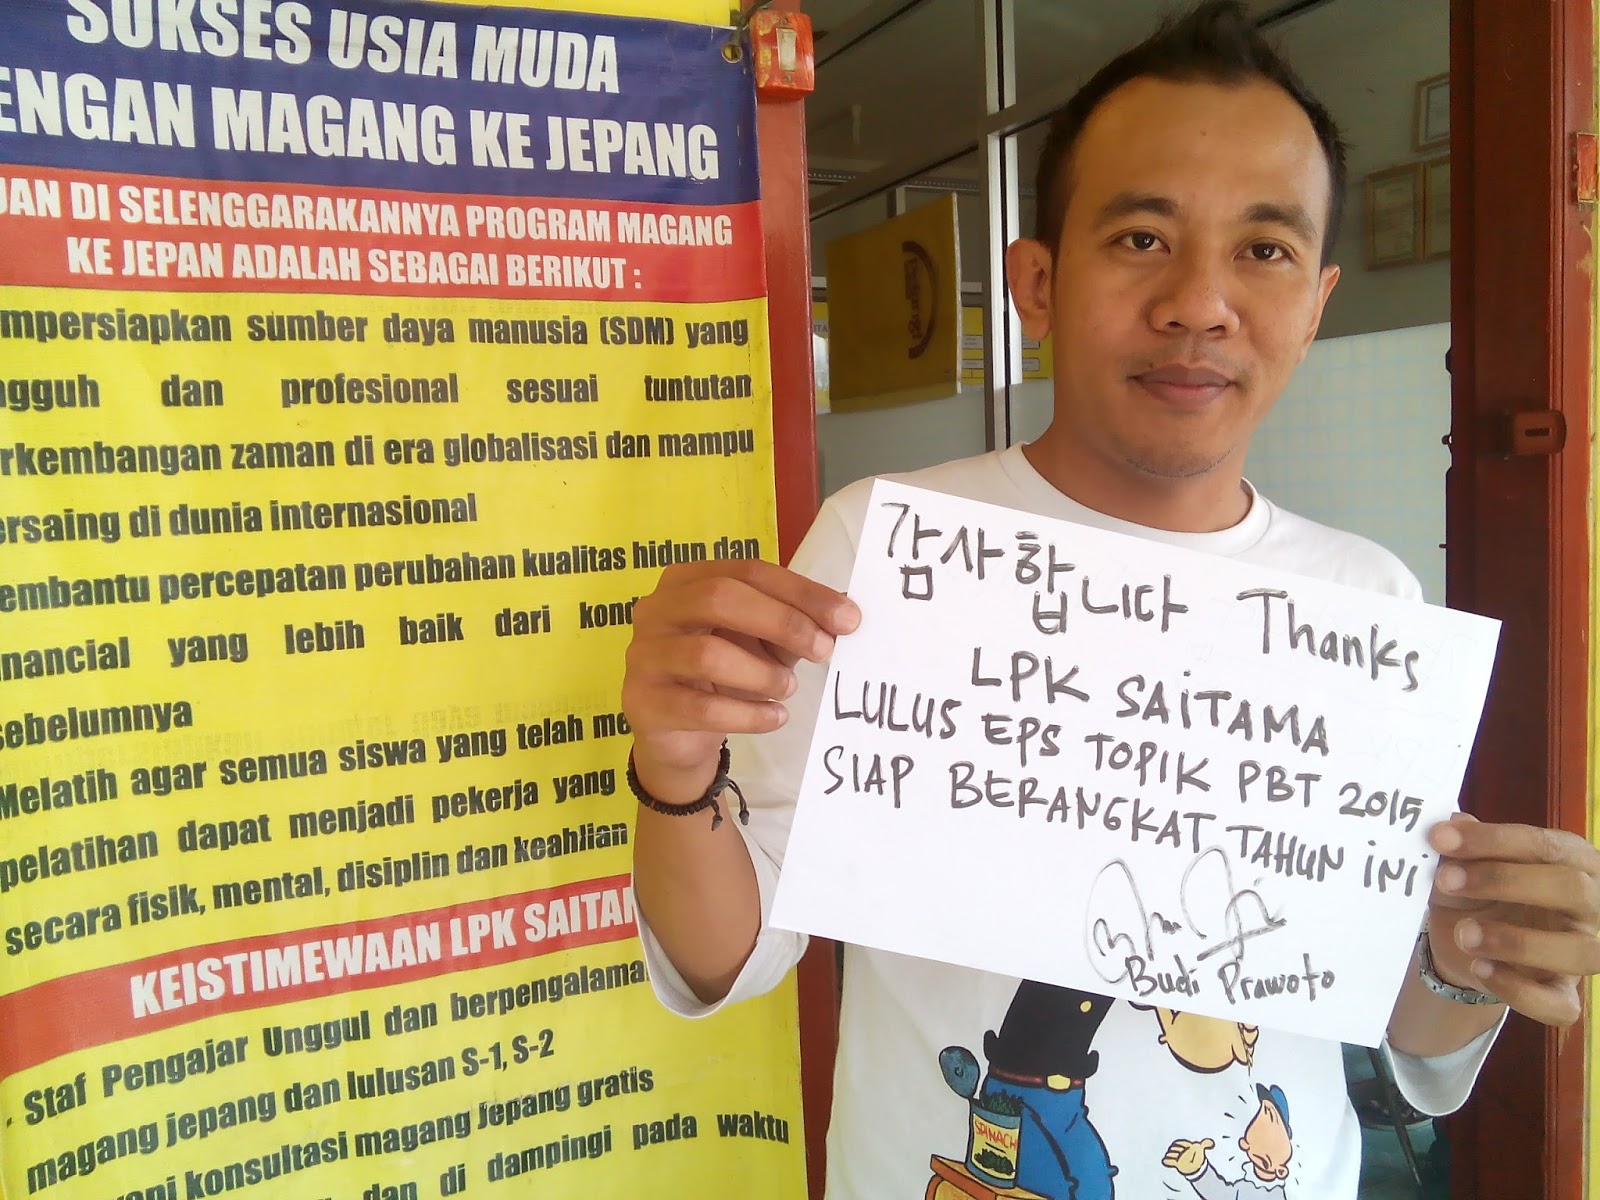 SUKSES USIA MUDA
DENGAN MAGANG KE JEPANG
DI SELENGGARAKANNYA PROGRAM MAGANG
KE JEPAN ADALAH SEBAGAI BERIKUT :
sumber daya manusia (SDM) yang
dan profesional sesuai tuntutan
zaman di era globalisasi dan mampu
di dunia internasional
percepatan perubahan kualitas hidup dan
yang lebih baik dari
sebelumnya
Melatih agar semua siswa yang telah
pelatihan dapat menjadi pekerja yang
secara fisik, mental, disiplin dan keahlian
KEISTIMEWAAN LPK
Staf Pengajar Unggul dan
magang jepang dan lulusan S-1, S-2
konsultasi magang Jepang gratis
dan di dampingi pada waktu
감사합니다 Thanks
LPK SAITAMA
LULUS EPS TOPIK PBT 2015
SIAP BERANGKAT TAHUN INI
Budi Prawoto
SPINACH